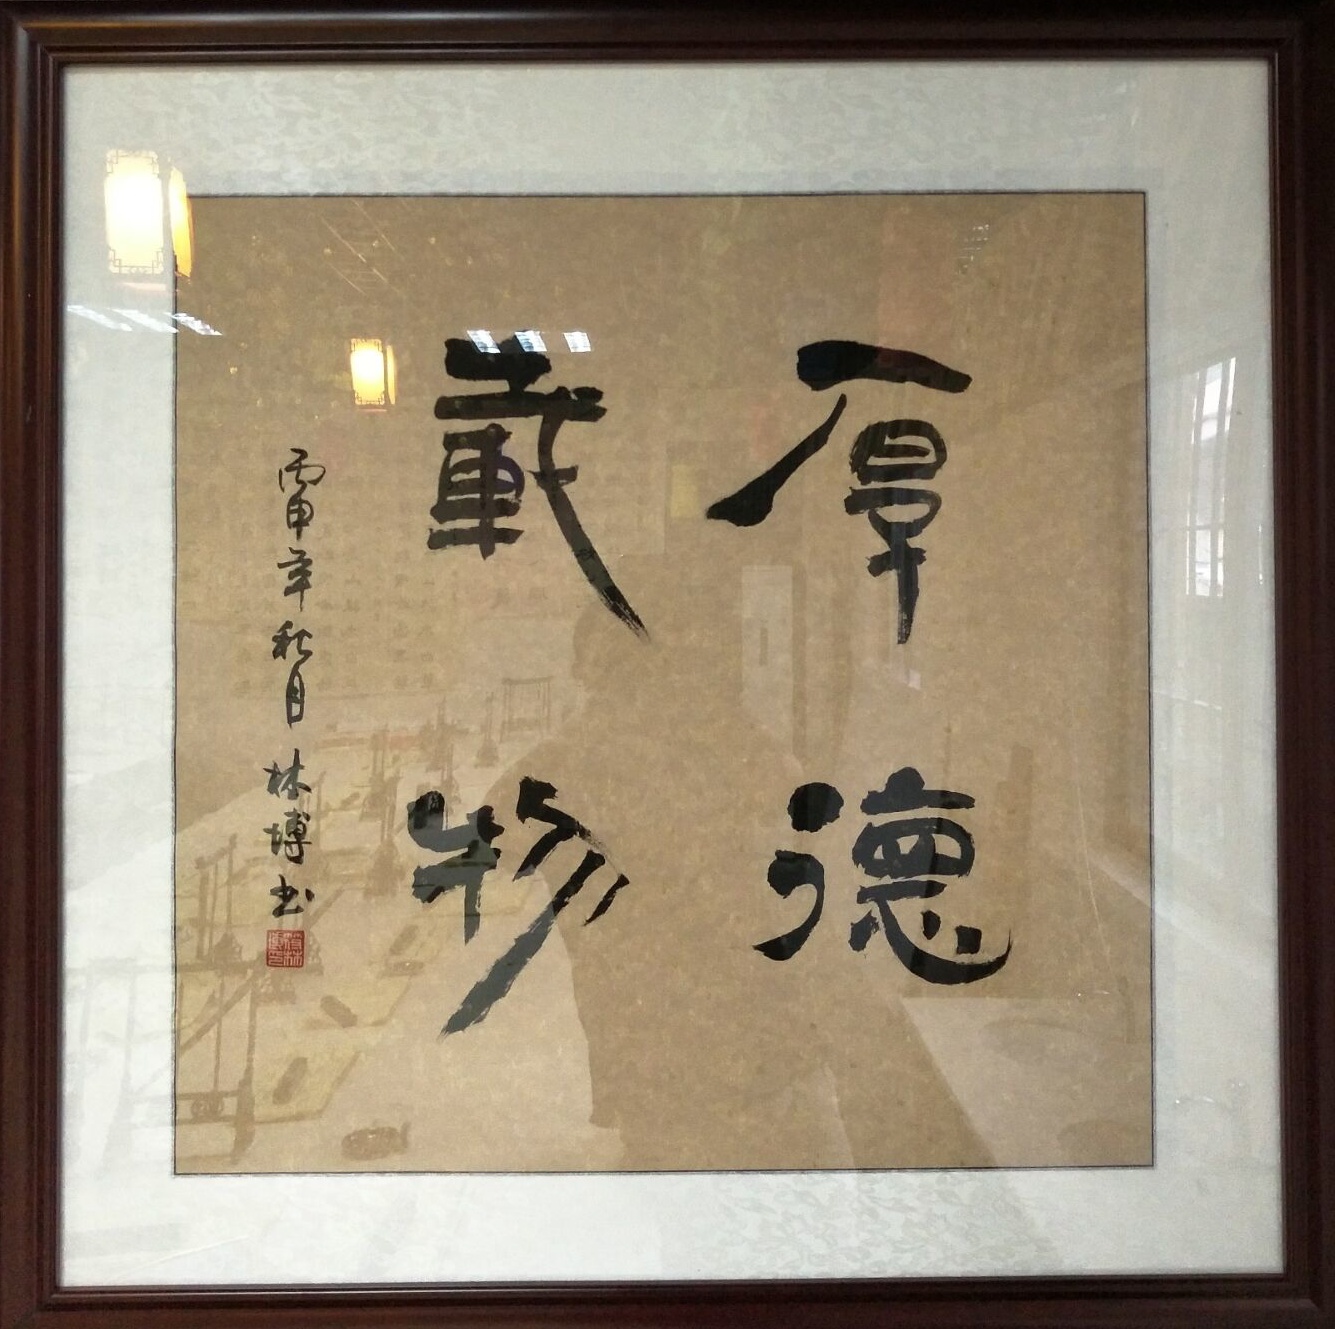 厚德
載物
丙申年秋月林博书